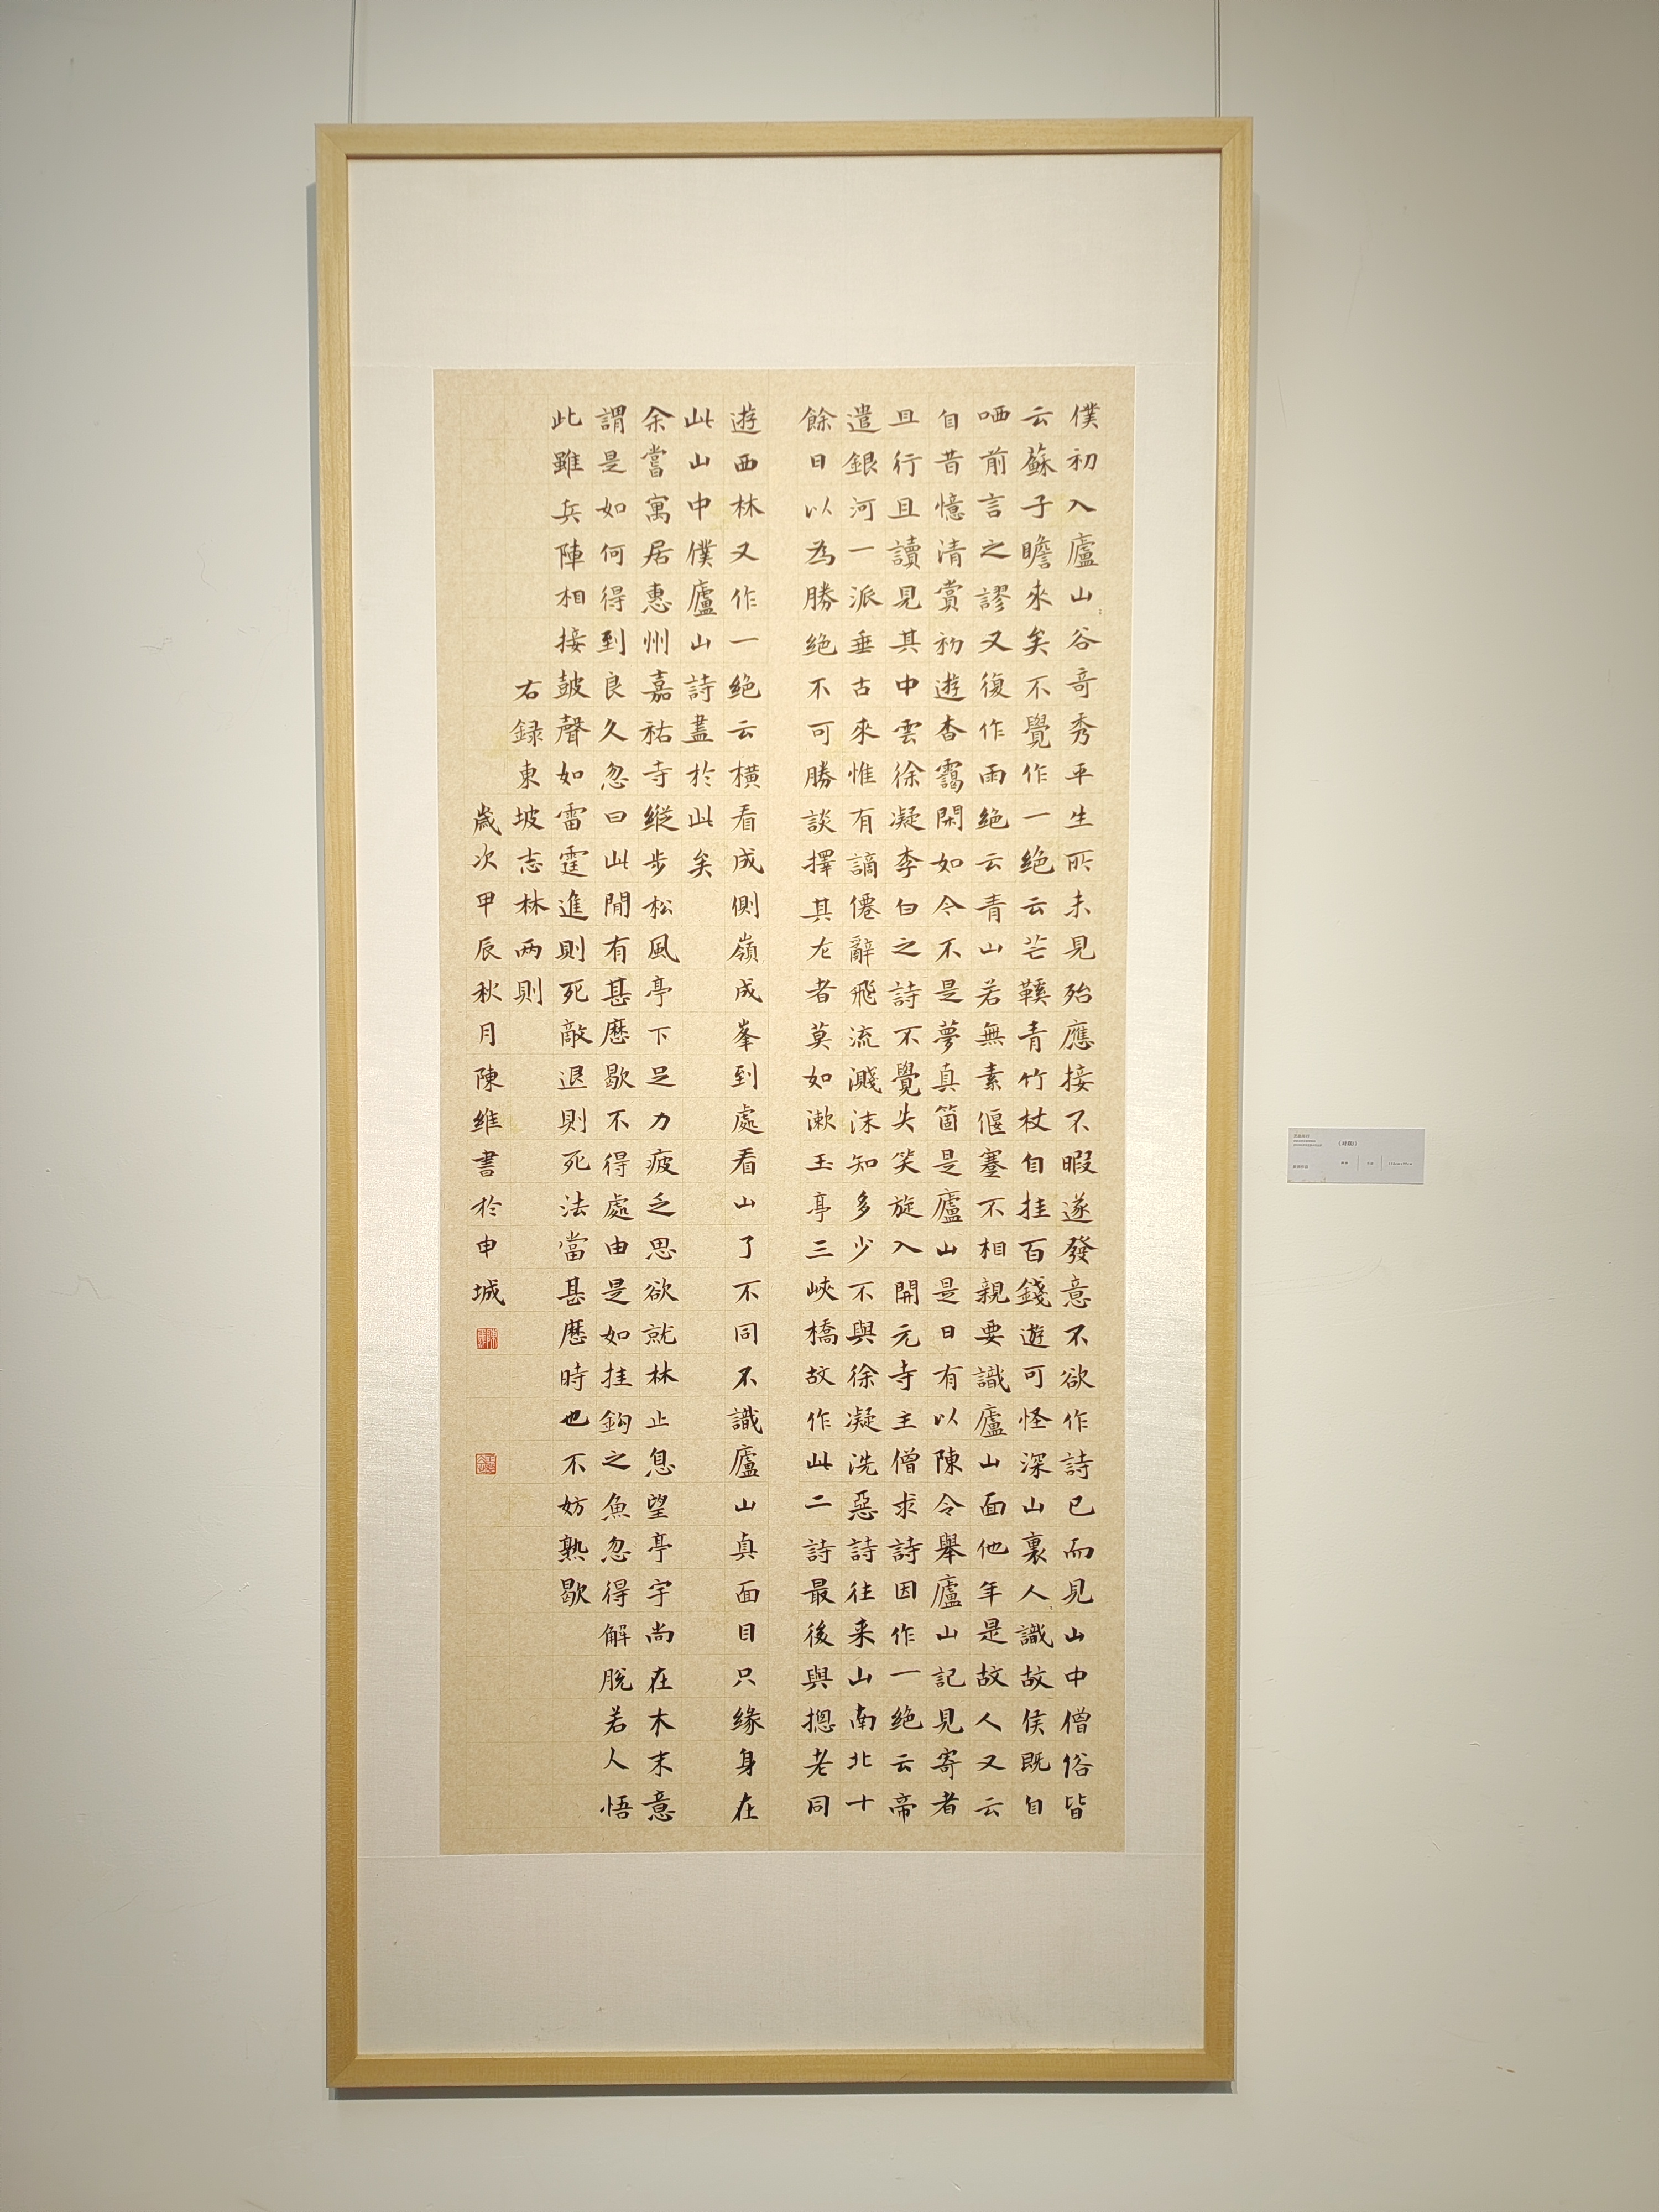 僕初入廬山谷奇秀平生所未見殆應接不暇遂發意不欲作詩已而見山中僧俗皆
云蘇子瞻來矣不覺作一絕云芒鞵青竹杖自挂百錢遊可怪深山裏人識故侯既自
哂前言之謬又復作兩絕云青山若無素偃蹇不相親要識廬山面他年是故人又云
自昔憶清賞初遊杳靄閑如今不是夢真箇是廬山是日有以陳令舉廬山記見寄者
且行且讀見其中雲徐凝李白之詩不覺失笑旋入開元寺主僧求詩因作一絕云帝
遣銀河一派垂古來惟有謫僊辭飛流濺沫知多少不與徐凝洗惡詩往来山南北十
餘日以為勝絕不可勝談擇其尤者莫如漱玉亭三峽橋故作此二詩最後與摠老同
遊西林又作一絕云橫看成側嶺成峯到處看山了不同不識廬山真面目只緣身在
此山中僕廬山詩盡於此矣
余嘗寓居惠州嘉祐寺縱步松風亭下足力疲乏思欲就林止息望亭宇尚在木末意
謂是如何得到良久忽曰此間有甚歷歇不得處由是如挂鈎之魚忽得解脫若人悟
此雖兵陣相接鼓聲如雷霆進則死敵退則死法當甚歷時也不妨熟歇
右録東坡志林兩則
歲次甲辰秋月陳維書於申城